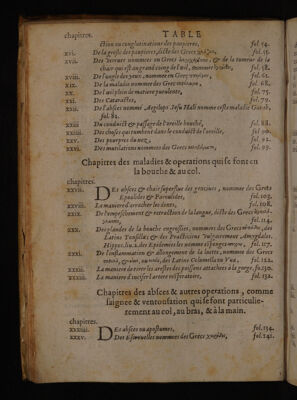 chapitres. TABLE
ction ou conglutination des paupieres, fol. 54.
xvi. De la gresle des paupieres, dicte des Grecs fol. 55.
xvii. Des verrues nommees en Grecs & de la tumeur de la
chair qui est au grand coing de l'œil, fol. 58.
xviii. De l'ungle des yeux, nommee en Grec fol. 61.
xix. De la maladie nommee des Grecs fol. 68.
xx. De l'œil plein de matiere purulente, fol. 71.
xxi. Des Cataractes, fol. 72.
xxii. De l'absces nommé Aegilops Jesu Hali nomme ceste maladie
fol. 82.
xxiii Du conduict & passage de l'oreille bouché, fol. 88.
xxiiii. Des choses qui tumbent dans le conduict de l'oreille, fol. 90.
xxv. Des pourpres du nez, fol. 92.
xxvi. Des mutilations nommees des Grecs fol. 97.
Chapitres des maladies & operations qui se font en
la bouche & au col.
chapitres.
xxvii. DEs absces & chair superflue des gencives, nommee des Grecs
Epoulides & Paroulides, fol. 103.
xxviii. La maniere d'arracher les dents, fol. 108.
xxix. De l'empeschement & retraction de la langue, dicte des Grecs
fol. 114.
xxx. Des glandes de la bouche engrossies, nommees des Grecs des
Latins Tonsillæ & des Practiciens vulgairement Amygdales
Hippoc. fol. 117.
xxxi. De l'inflammation & allongement de la luette, nommee des Grecs
des Latins Columella ou Vva, fol. 122.
xxxii. La maniere de tirer les arestes des poissons attachees à la gorge, fo. 130.
xxxiii. La maniere d'inciser l'artere respiratoire, fol. 132.
Chapitres des absces & autres operations, comme
saignee & ventousation qui se font particulie-
rement au col, au bras, & à la main.
chapitres.
xxxiiii. DEs absces ou apostumes, fol. 134.
xxxv. Des Escrouelles nommees des Grecs fol. 142.